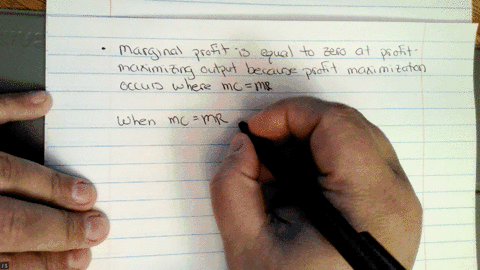 • marginal profit is equal to zero at profit-
maximizing output because profit maximization
occurs where MC = MR
When MC = MR